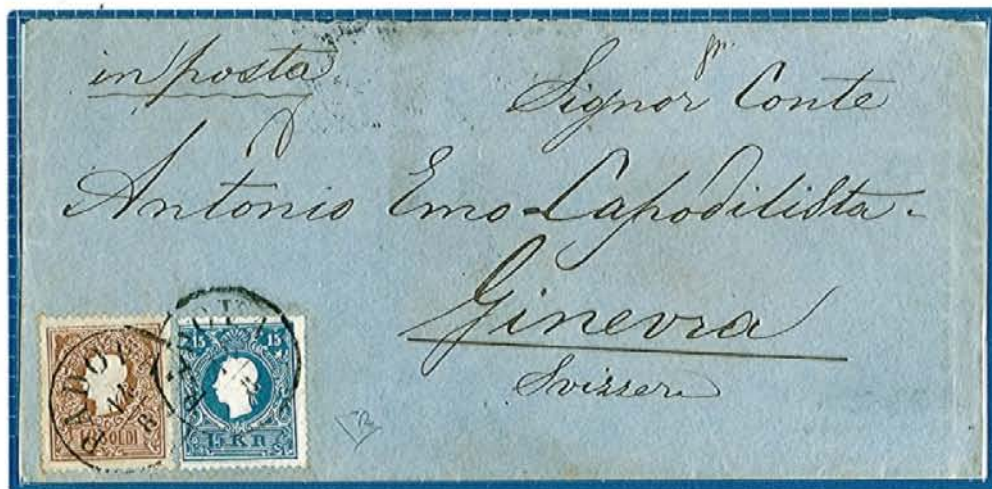 in posta
Signor Conte
Antonio Emo-Capodilista.
Ginevra
Svizzera
PADOVA
SOLDI
15 15
15 KR